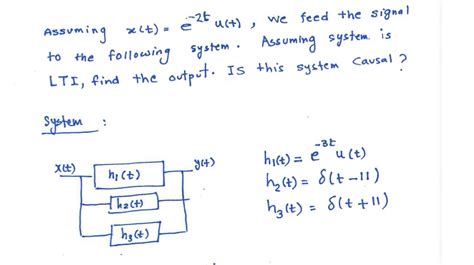 Assuming x(t) = e^{-2t} u(t), we feed the signal
to the following system. Assuming system is
LTI, find the output. Is this system causal?
System :
x(t) h₁(t) y(t)
h₂(t)
h₃(t)
h₁(t) = e^{-3t} u(t)
h₂(t) = δ(t-11)
h₃(t) = δ(t+11)